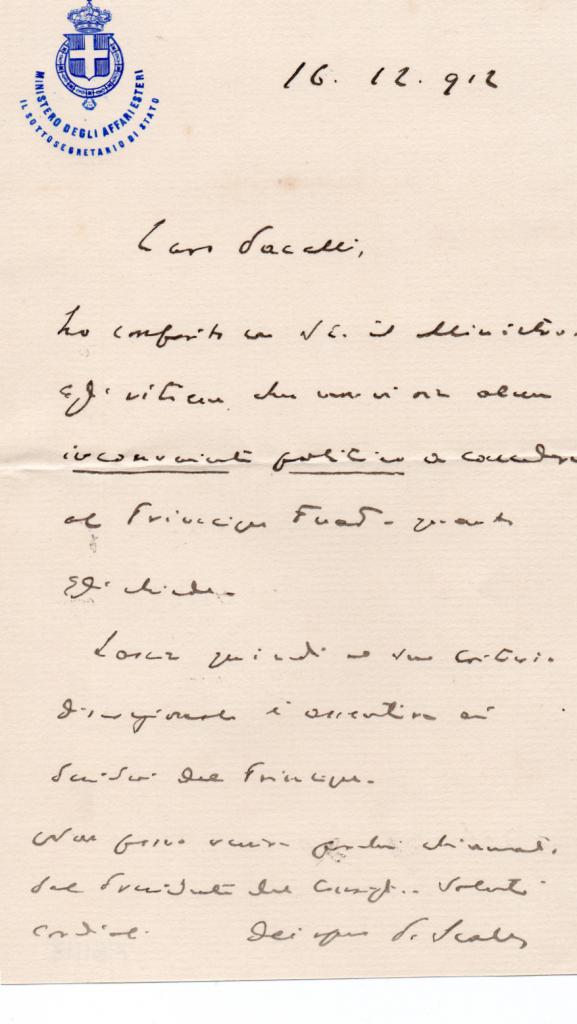 MINISTERO DEGLI AFFARI ESTERI
IL SOTTOSEGRETARIO DI STATO
16. 12. 912
Caro
ho conferito con S.E. il Ministro.
Egli ritiene che non vi sia alcun
inconveniente politico a concedere
al Principe Fuad - quanto
Egli chiede.
Lascio quindi al suo criterio
discrezionale i
desideri del Principe.
Non posso venire perché chiamato
dal Presidente del Consiglio. Saluti
cordiali. di Scalea